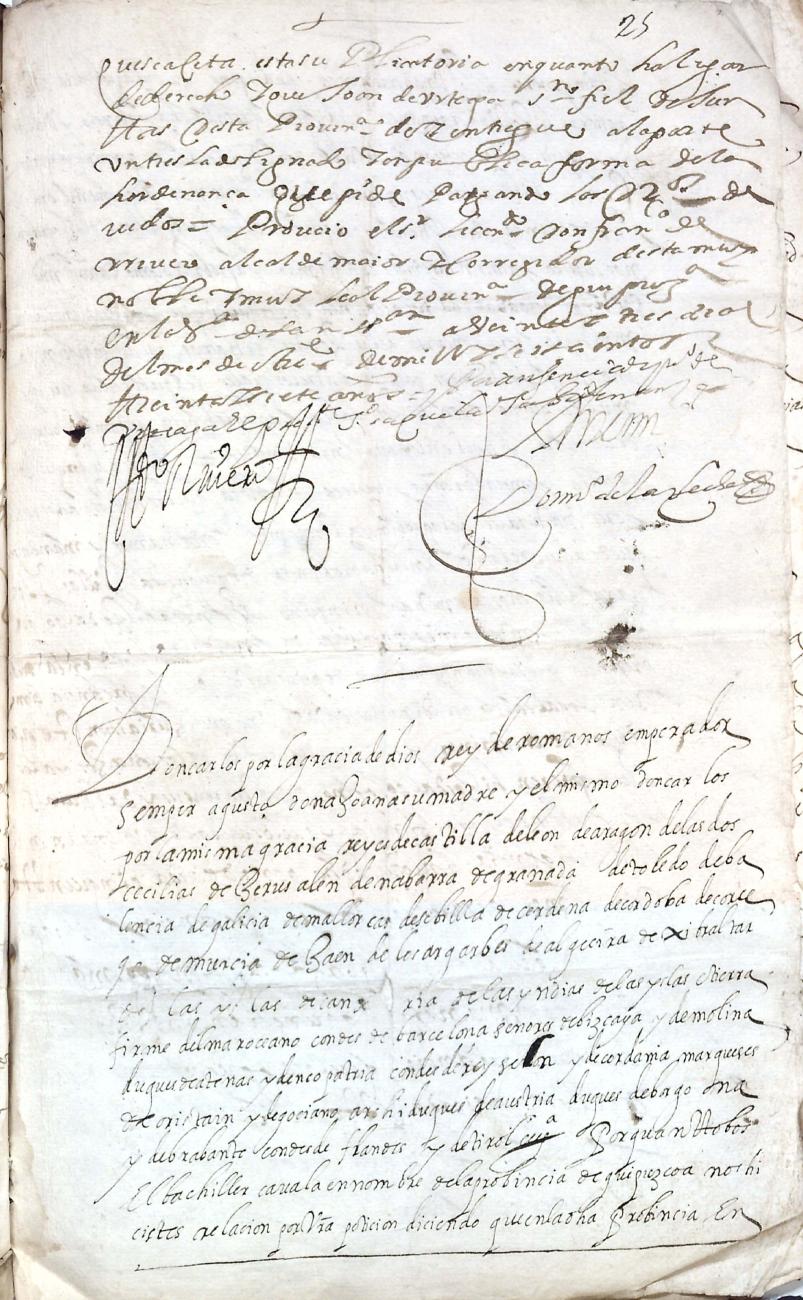 25
que scaleta esta su Plicatoria en quanto halugar
de derecho Joan de Urtega s.no fiel
desta Provin.a de entregue a la parte
signado En pu blica forma de la
hordenança que pide Pagando los dr.os de
vidos = Proveio el s.r licen.do Don fran.co de
rrivera alcalde maior Corregidor desta muy
noble y muy leal Provin.a de guipuz.a
en la de san a Veinte y tres dias
del mes de de mill y seiscientos
treinta y siete años =
Rivera
Dom.o de la
Don carlos por la gracia de dios rey de romanos emperador
semper agusto dona Joana su madre y el mismo don car los
por la mis ma gracia reyes de cas tilla de leon de aragon de las dos
cecilias de Jerusalen de nabarra de granada de toledo de ba
lencia de galicia de mallorcas de sebilla de cerdena de cordoba de corce
ga de murcia de Jaen de los argarbes de algecira de xibraltar
de las y las de canaria de las yndias de las yslas e tierra
firme del mar oceano condes de barcelona señores de bizcaya y de molina
duques de atenas y de neopatria condes de rey sellon y de cerdania marqueses
de oristain y de gociano archiduques de austria duques de borgo na
y de brabante condes de flandes y de tirol Por quanto bos
El bachiller cavala en nombre de la probincia de guipuzcoa nos hi
cistes relacion por vra peticion diciendo que en la dha probincia En